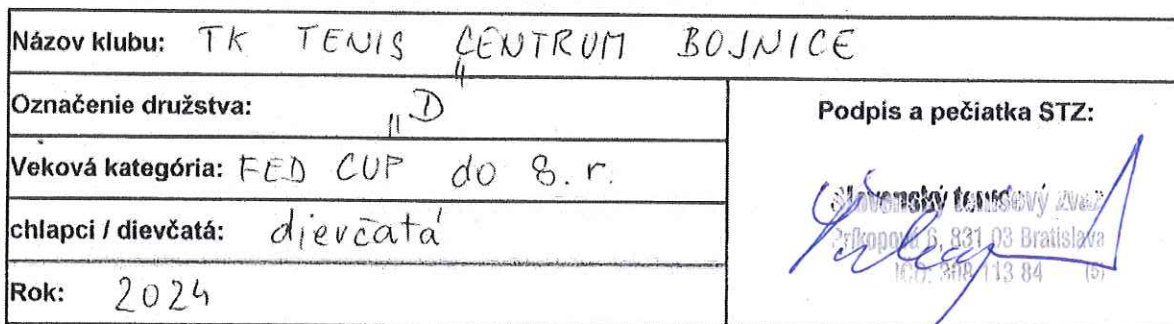 Názov klubu: TK TENIS CENTRUM BOJNICE
Označenie družstva: "D"
Veková kategória: FED CUP do 8. r.
chlapci / dievčatá: dievčatá
Rok: 2024
Podpis a pečiatka STZ:
Slovenský tenisový zväz
Príkopova 6, 831 03 Bratislava
IČO: 308 113 84 (5)